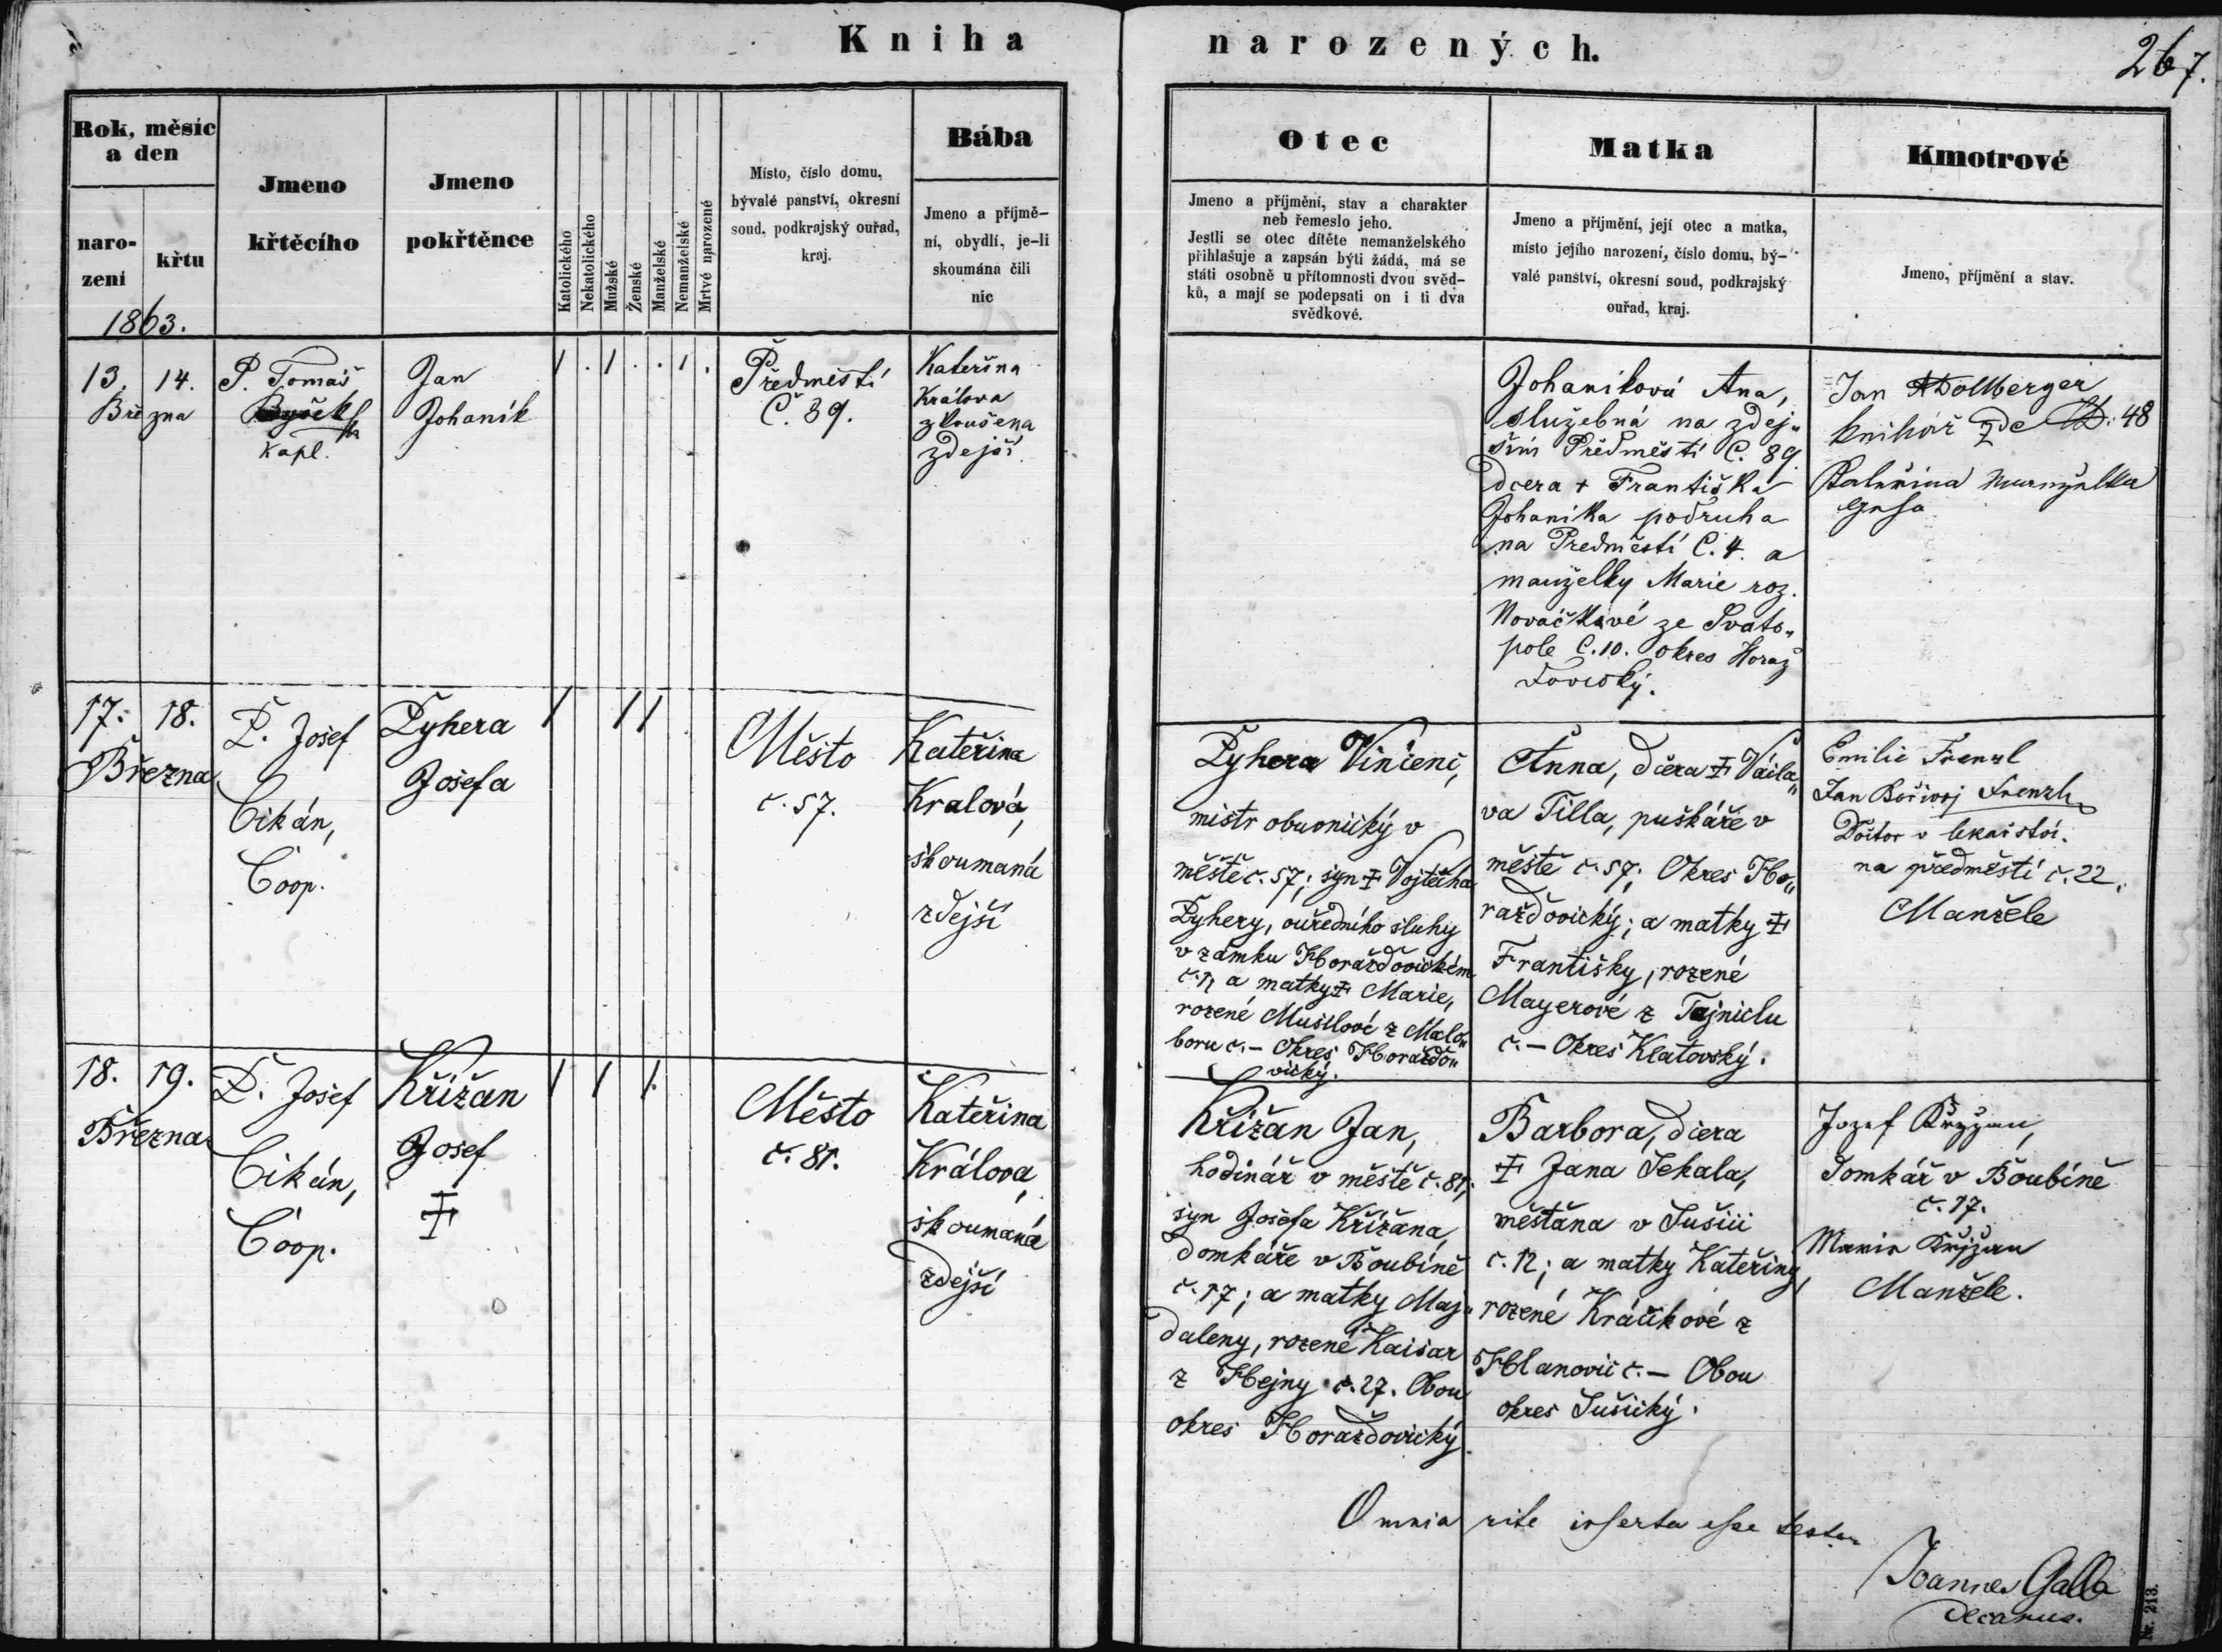 Kniha narozených.
267.
Rok, měsíc
a den
naro-
zení
křtu
1863.
Jmeno
křtěcího
Jmeno
pokřtěnce
Katolického
Nekatolického
Mužské
Ženské
Manželské
Nemanželské
Mrtvé narozené
Místo, číslo domu,
bývalé panství, okresní
soud, podkrajský ouřad,
kraj.
Bába
Jmeno a příjmě-
ní, obydlí, je-li
skoumána čili
nic
Otec
Jmeno a příjmění, stav a charakter
neb řemeslo jeho.
Jestli se otec dítěte nemanželského
přihlašuje a zapsán býti žádá, má se
státi osobně u přítomnosti dvou svěd-
ků, a mají se podepsati on i ti dva
svědkové.
Matka
Jmeno a příjmění, její otec a matka,
místo jejího narození, číslo domu, bý-
valé panství, okresní soud, podkrajský
ouřad, kraj.
Kmotrové
Jmeno, příjmění a stav.
13. 14.
Března
P. Tomáš
kapl.
Jan
Johanik
1 . 1 . . 1 .
Předměstí
Č. 89.
Kateřina
Králova
zkoušena
zdejší
Johaniková Ana,
služebná na zdej„
ším Předměstí Č. 89.
dcera + Františka
Johanika podruha
na Předměstí Č. 4. a
manželky Marie roz.
Nováčkové ze Svato„
pole Č. 10. okres Horaž
ďovický.
Jan Dollberger
knihář zde 48
Kateřina
17. 18.
Března
P. Josef
Cikán,
Coop.
Zyhera
Josefa
1 1 1
Město
č. 57.
Kateřina
Kralová,
skoumaná
zdejší
Zyhera Vincenc,
mistr obuvnický v
městě č. 57; syn ‡ Vojtěcha
Zyhery, ouředního sluhy
v zámku Horažďovickém
č. 1, a matky ‡ Marie,
rozené Musilové z Malo„
boru č. – Okres Horažďo„
vický.
Anna, dcera ‡ Václa„
va Tilla, puškáře v
městě č. 57; Okres Ho„
ražďovický; a matky ‡
Františky, rozené
Mayerové z Tajniclu
č. – Okres Klatovský.
Emilie Frenzl
Jan Bořivoj Frenzl
Doctor v lekařství.
na předměstí č. 22.
Manžele
18. 19.
Března
P. Josef
Cikán,
Coop.
Křižan
Josef
‡
1 1 1
Město
č. 81.
Kateřina
Králova,
skoumaná
zdejší
Křižan Jan,
hodinář v městě č. 81;
syn Josefa Křižana,
domkáře v Boubíně
č. 17; a matky Maj„
daleny, rozené Kaisar
z Hejny č. 27. Obou
okres Horažďovický.
Barbora, dcera
‡ Jana Sekala,
měšťana v Sušici
č. 12; a matky Kateřiny,
rozené Kráčikové z
Hlanovic č. – Obou
okres Sušický.
Jozef Křyžan,
domkář v Boubíně
č. 17.
Marie Křižan
Manžele.
Omnia rite inserta esse testor
Joannes Galla
decanus.
Nr. 213.